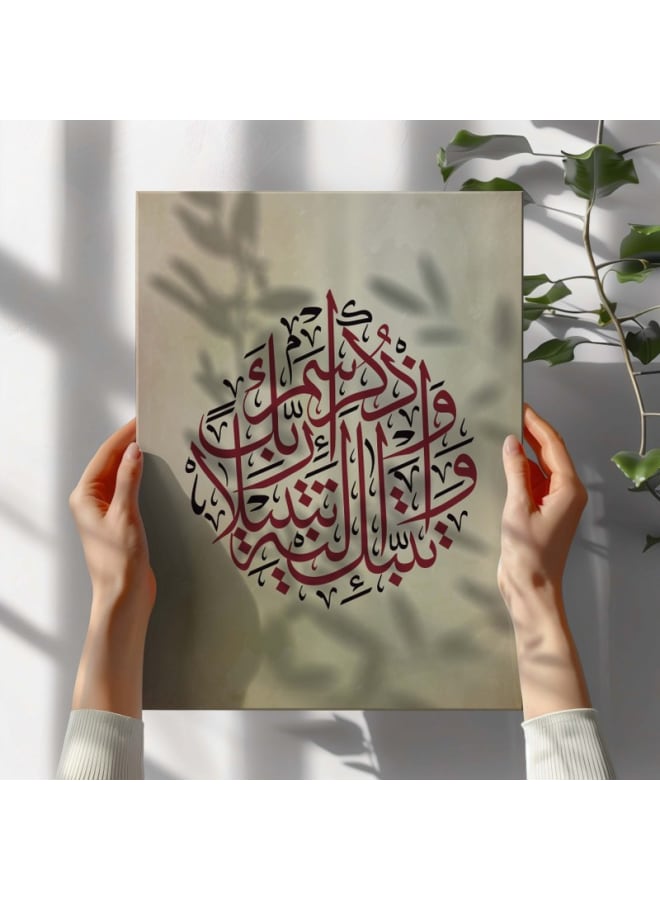 وَاذْكُرِ اسْمَ رَبِّكَ
وَتَبَتَّلْ إِلَيْهِ تَبْتِيلًا